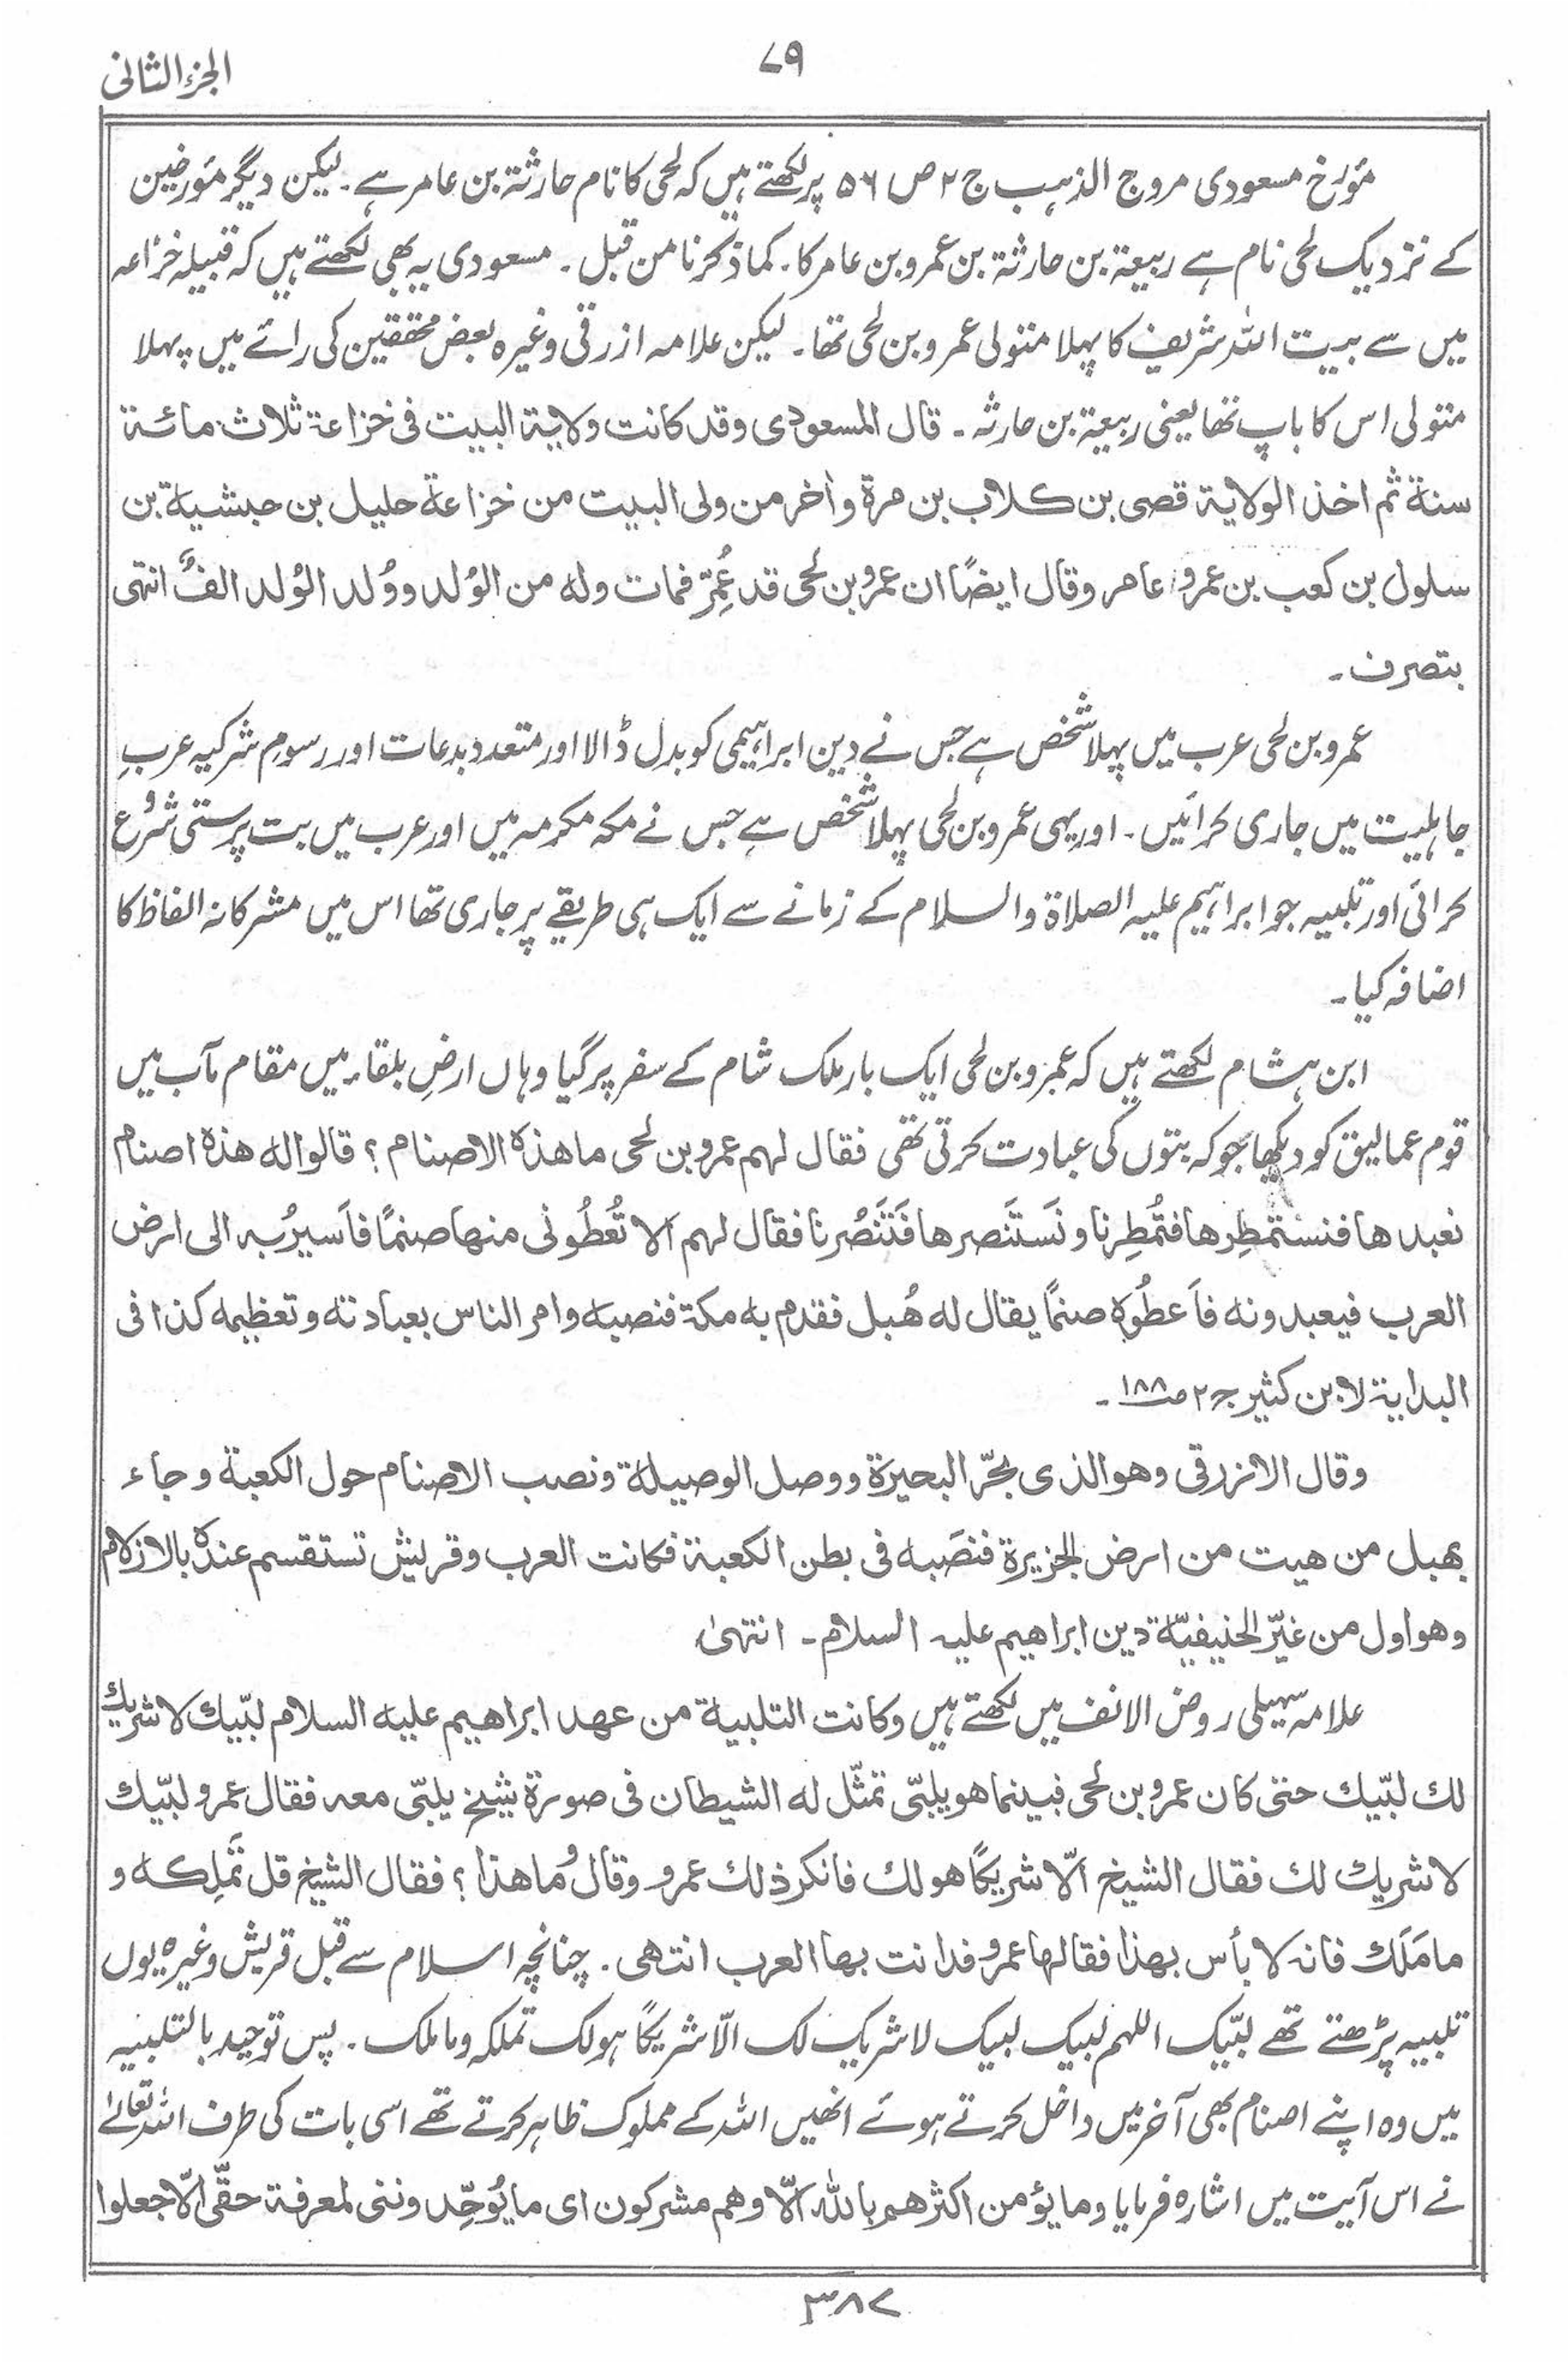 الجزء الثانی
۷۹
مؤرخ مسعودی مروج الذہب ج ۲ ص ۵۶ پر لکھتے ہیں کہ لحی کا نام حارثۃ بن عامر ہے۔ لیکن دیگر مؤرخین
کے نزدیک لحی نام ہے ربیعۃ بن حارثۃ بن عمرو بن عامر کا۔ کما ذکرنا من قبل۔ مسعودی یہ بھی لکھتے ہیں کہ قبیلہ خزاعہ
میں سے بیت اللہ شریف کا پہلا متولی عمرو بن لحی تھا۔ لیکن علامہ ازرقی وغیرہ بعض محققین کی رائے میں پہلا
متولی اس کا باپ تھا یعنی ربیعۃ بن حارثہ۔ قال المسعودی وقد کانت ولایۃ البیت فی خزاعۃ ثلاث مائۃ
سنۃ ثم اخذ الولایۃ قصی بن کلاب بن مرۃ وأخر من ولی البیت من خزاعۃ حلیل بن حبشیۃ بن
سلول بن کعب بن عمرو عامر وقال ایضًا ان عمرو بن لحی قد عُمِّر فمات ولہ من الوُلد ووُلد الوُلد الفٌ انتہی
بتصرف۔
عمرو بن لحی عرب میں پہلا شخص ہے جس نے دین ابراہیمی کو بدل ڈالا اور متعدد بدعات اور رسومِ شرکیہ عربِ
جاہلیت میں جاری کرائیں۔ اور یہی عمرو بن لحی پہلا شخص ہے جس نے مکہ مکرمہ میں اور عرب میں بت پرستی شروع
کرائی اور تلبیہ جو ابراہیم علیہ الصلاۃ والسلام کے زمانے سے ایک ہی طریقے پر جاری تھا اس میں مشرکانہ الفاظ کا
اضافہ کیا۔
ابن ہشام لکھتے ہیں کہ عمرو بن لحی ایک بار ملک شام کے سفر پر گیا وہاں ارضِ بلقاء میں مقام مآب میں
قوم عمالیق کو دیکھا جو کہ بتوں کی عبادت کرتی تھی فقال لہم عمرو بن لحی ما ھذہ الاصنام ؟ قالوا لہ ھذہ اصنام
نعبدھا فنستمطِرھا فتُمطِرنا ونَستَنصرھا فَتَنصُرنا فقال لہم الا تُعطُونی منھا صنمًا فأسیرُ بہ الی ارض
العرب فیعبدونہ فأعطُوہ صنمًا یقال لہ ھُبل فقدم بہ مکۃ فنصبہ وامر الناس بعبادتہ وتعظیمہ کذا فی
البدایۃ لابن کثیر ج ۲ ص ۱۸۸۔
وقال الازرقی وھو الذی بحّر البحیرۃ ووصل الوصیلۃ ونصب الاصنام حول الکعبۃ وجاء
بھبل من ھیت من ارض الجزیرۃ فنصَبہ فی بطن الکعبۃ فکانت العرب وقریش تستقسم عندہ بالازلام
وھو اول من غیّر الحنیفیّۃ دین ابراھیم علیہ السلام۔ انتہیٰ
علامہ سہیلی روض الانف میں لکھتے ہیں وکانت التلبیۃ من عھد ابراھیم علیہ السلام لبّیك لا شریك
لك لبّیك حتی کان عمرو بن لحی فبینما ھو یلبّی تمثّل لہ الشیطان فی صورۃ شیخ یلبّی معہ فقال عمرو لبّیك
لا شریك لك فقال الشیخ الّا شریکًا ھو لك فانکر ذلك عمرو وقال وما ھذا ؟ فقال الشیخ قل تَملِکہ و
ما مَلَك فانہ لا بأس بھذا فقالھا عمرو فدانت بھا العرب انتھی۔ چنانچہ اسلام سے قبل قریش وغیرہ یوں
تلبیہ پڑھتے تھے لبّیک اللہم لبیک لبیک لاشریک لک الّا شریکًا ہولک تملکہ وماملک۔ پس توحید بالتلبیہ
میں وہ اپنے اصنام بھی آخر میں داخل کرتے ہوئے انھیں اللہ کے مملوک ظاہر کرتے تھے اسی بات کی طرف اللہ تعالیٰ
نے اس آیت میں اشارہ فرمایا وما یؤمن اکثرھم باللہ الّا وھم مشرکون ای ما یُوحِّدوننی لمعرفۃ حقّی الّا جعلوا
۳۸۷